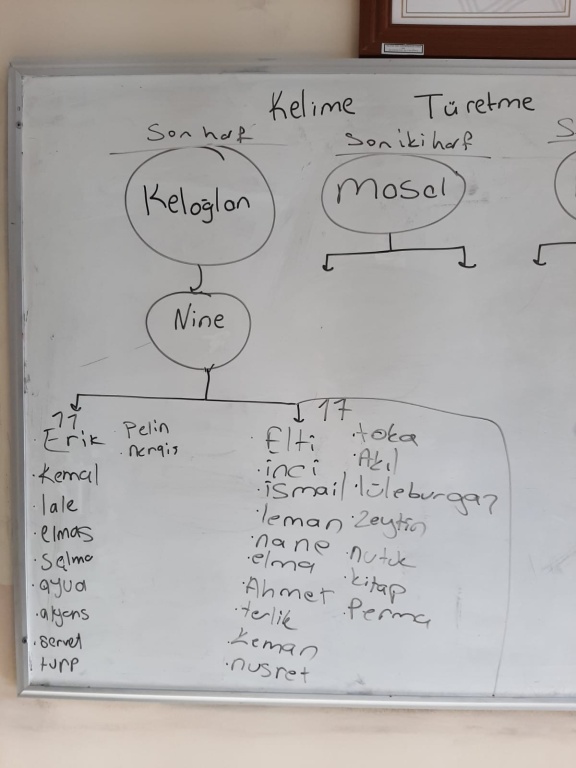 Kelime Türetme
Son harf
Keloğlan
Son iki harf
Masal
S
Nine
11
Erik
·Kemal
lale
·elmas
·Salma
·ayva
·akyans
·servet
·turp
·Pelin
·nergis
17
·Elti
·inci
·ismail
·leman
·nane
·elma
·Ahmet
·terlik
·Keman
·nusret
·toka
·Akıl
·lüleburgaz
·Zeytin
·nutuk
·kitap
·Perma